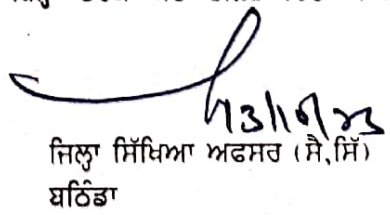 13/10/23
ਜਿਲ੍ਹਾ ਸਿੱਖਿਆ ਅਫਸਰ (ਸੈ,ਸਿੱ)
ਬਠਿੰਡਾ